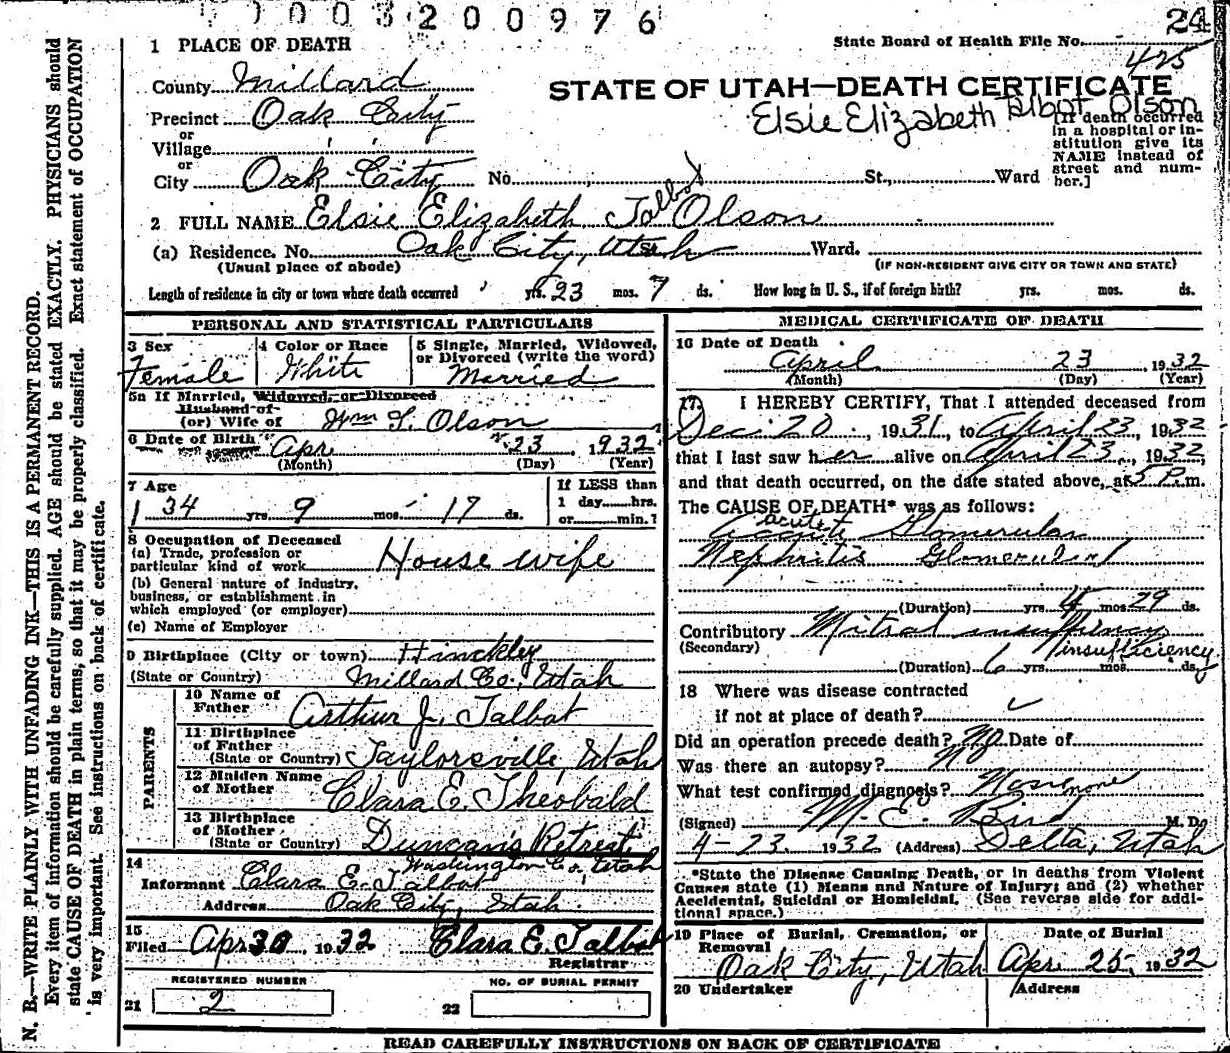 003200976
24
State Board of Health File No.
425
STATE OF UTAH—DEATH CERTIFICATE
Elsie Elizabeth Talbot Olson
[If death occurred in a hospital or institution give its NAME instead of street and number.]
1 PLACE OF DEATH
County Millard
Precinct Oak City
or
Village
or
City Oak City No. St., Ward
2 FULL NAME Elsie Elizabeth Talbot Olson
(a) Residence. No. Oak City, Utah St. Ward.
(Usual place of abode) (IF NON-RESIDENT GIVE CITY OR TOWN AND STATE)
Length of residence in city or town where death occurred yrs. 23 mos. 7 ds. How long in U. S., if of foreign birth? yrs. mos. ds.
PERSONAL AND STATISTICAL PARTICULARS
3 Sex
Female
4 Color or Race
White
5 Single, Married, Widowed, or Divorced (write the word)
Married
5a If Married, Widowed, or Divorced
Husband of
(or) Wife of Wm L. Olson
6 Date of Birth Apr 23, 1932
(Month) (Day) (Year)
7 Age
34 yrs. 9 mos. 17 ds.
If LESS than
1 day hrs.
or min.?
8 Occupation of Deceased
(a) Trade, profession or
particular kind of work House wife
(b) General nature of industry,
business, or establishment in
which employed (or employer)
(c) Name of Employer
9 Birthplace (City or town) Hinckley
(State or Country) Millard Co., Utah
PARENTS
10 Name of
Father Arthur J. Talbot
11 Birthplace
of Father
(State or Country) Taylorsville, Utah
12 Maiden Name
of Mother Clara E. Theobald
13 Birthplace
of Mother
(State or Country) Duncan's Retreat
Washington Co., Utah
14
Informant Clara E. Talbot
Address Oak City, Utah
15
Filed Apr 30 1932 Clara E. Talbot
Registrar
REGISTERED NUMBER
21 2
NO. OF BURIAL PERMIT
22
MEDICAL CERTIFICATE OF DEATH
16 Date of Death
April 23 1932
(Month) (Day) (Year)
17. I HEREBY CERTIFY, That I attended deceased from
Dec. 20, 1931, to April 23, 1932
that I last saw her alive on April 23, 1932,
and that death occurred, on the date stated above, at 5 P. m.
The CAUSE OF DEATH* was as follows:
acute
Acute Glomerular
Nephritis Glomerular
(Duration) yrs. 4 mos. 29 ds.
Contributory Mitral insufficiency
(Secondary) insufficiency
(Duration) 6 yrs. mos. ds.
18 Where was disease contracted
if not at place of death?
Did an operation precede death? No Date of
Was there an autopsy? No
What test confirmed diagnosis?
(Signed) M. E. Bird M. D.
4-23, 1932 (Address) Delta, Utah
*State the Disease Causing Death, or in deaths from Violent
Causes state (1) Means and Nature of Injury; and (2) whether
Accidental, Suicidal or Homicidal. (See reverse side for addi-
tional space.)
19 Place of Burial, Cremation, or
Removal
Oak City, Utah
Date of Burial
Apr 25, 1932
20 Undertaker
Address
READ CAREFULLY INSTRUCTIONS ON BACK OF CERTIFICATE
N. B.—WRITE PLAINLY WITH UNFADING INK—THIS IS A PERMANENT RECORD.
Every item of information should be carefully supplied. AGE should be stated EXACTLY. PHYSICIANS should
state CAUSE OF DEATH in plain terms, so that it may be properly classified. Exact statement of OCCUPATION
is very important. See instructions on back of certificate.